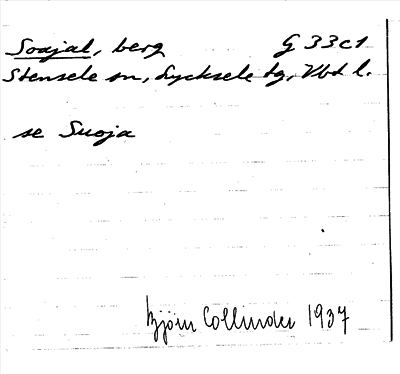 Soajal, berg G 33c1
Stensele sn, Lycksele tg, Vbt l.
se Suoja
Björn Collinder 1937